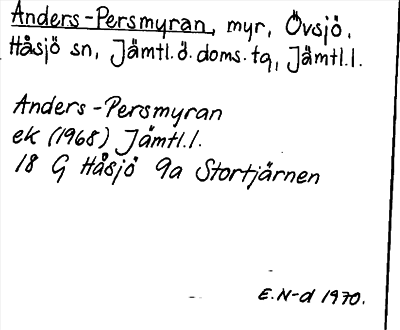 Anders-Persmyran, myr, Övsjö,
Håsjö sn, Jämtl. ö. doms. tg, Jämtl. l.
Anders-Persmyran
ek (1968) Jämtl. l.
18 G Håsjö 9a Stortjärnen
E. N-d 1970.